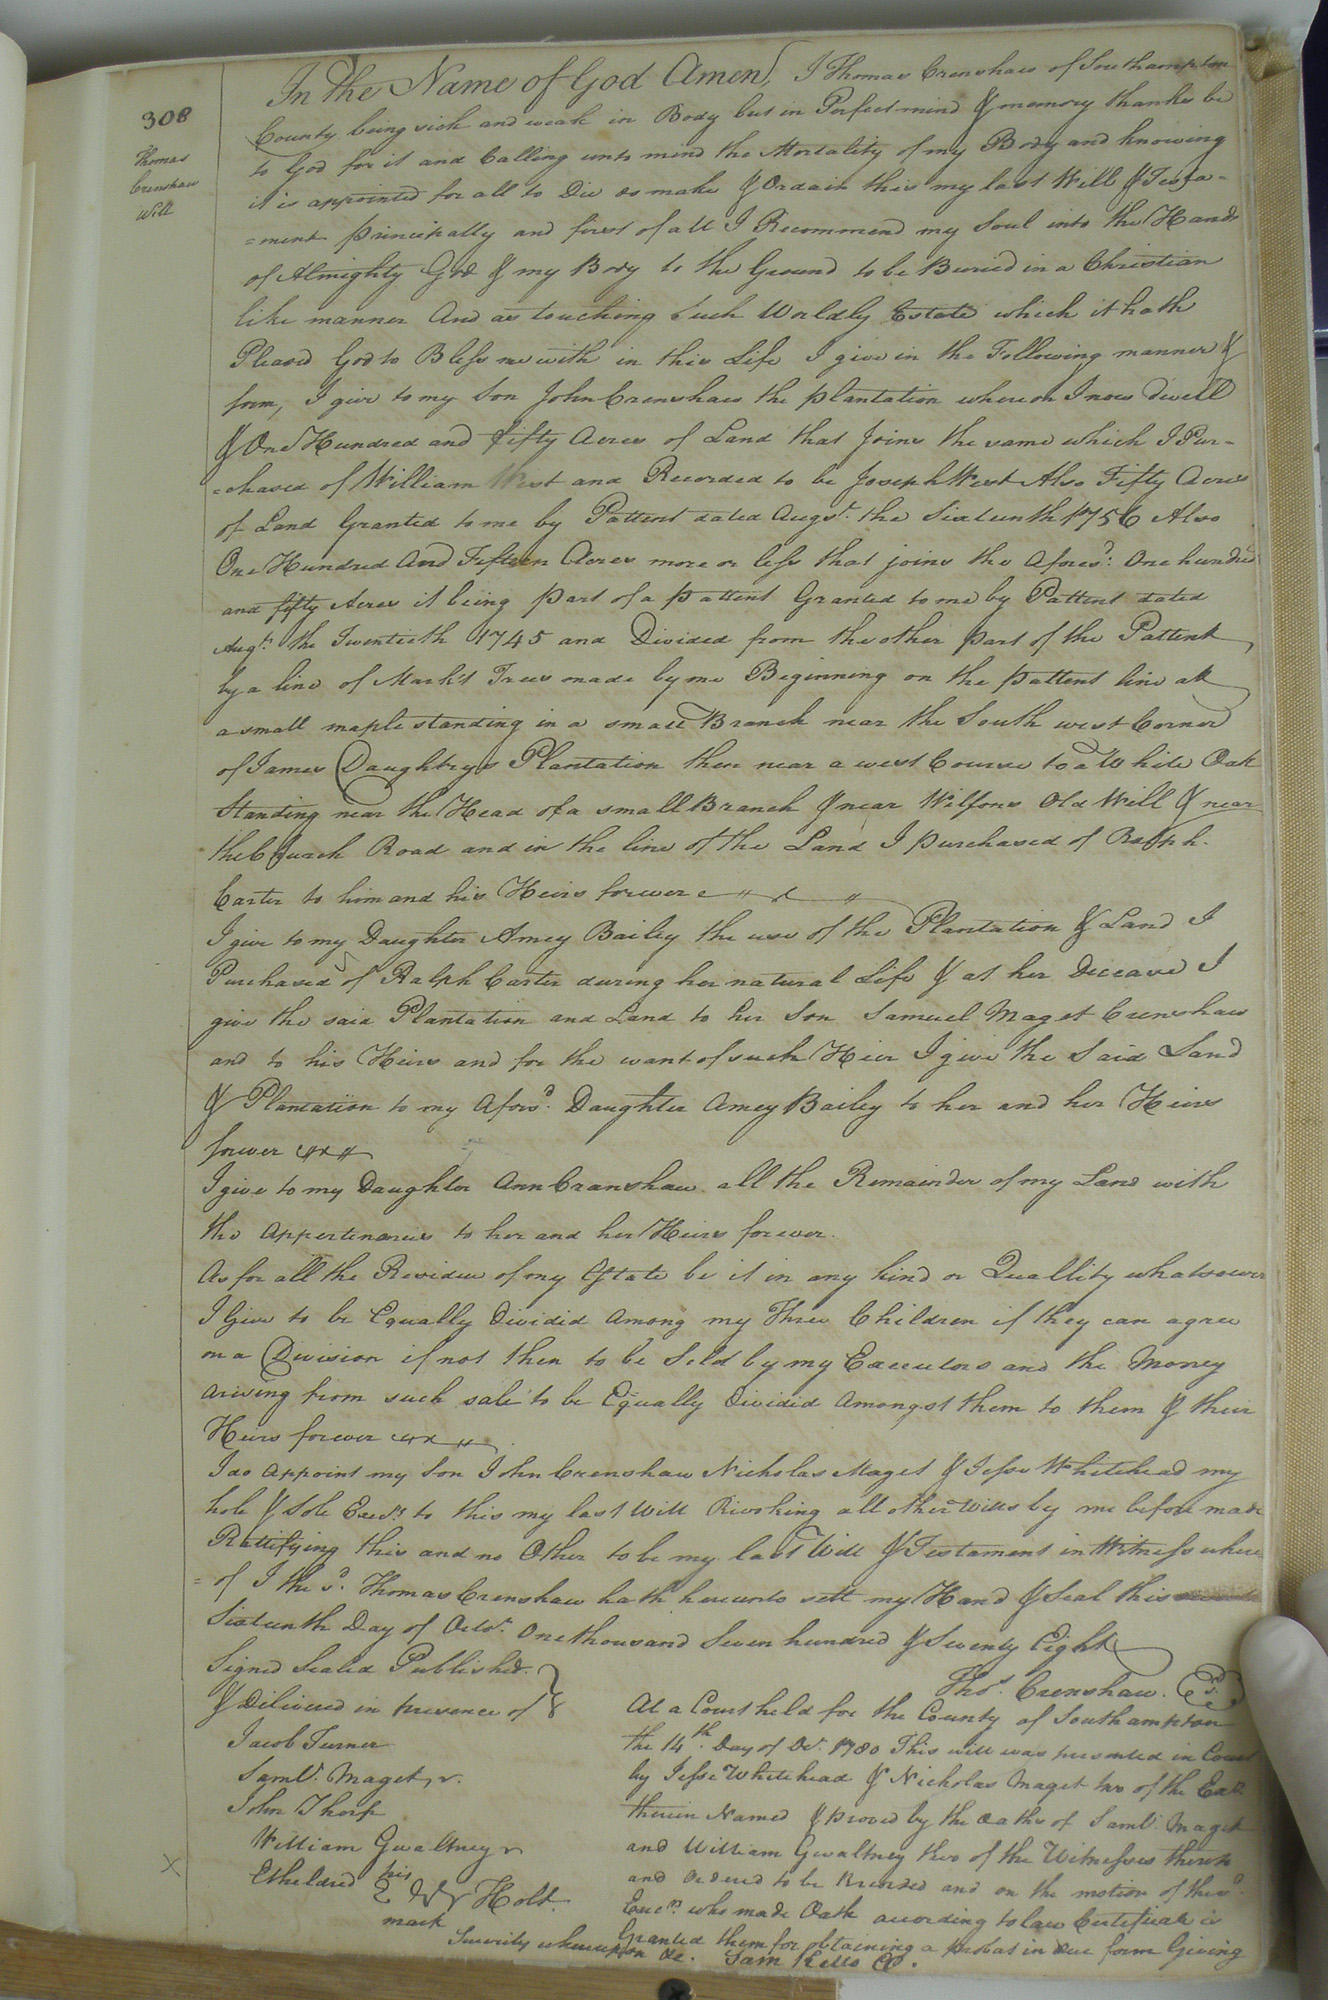 308
Thomas
Crenshaw
Will
In the Name of God Amen, I Thomas Crenshaw of Southampton
County being sick and weak in Body but in Perfect mind & memory thanks be
to God for it and Calling unto mind the Mortality of my Body and knowing
it is appointed for all to Die do make & Ordain this my last Will & Testa-
=ment principally and first of all I Recommend my Soul into the Hands
of Almighty God & my Body to the Ground to be Buried in a Christian
like manner And as touching Such Worldly Estate which it hath
Pleasd God to Bless me with in this Life I give in the Following manner &
form, I give to my Son John Crenshaw the plantation whereon I now dwell
& One Hundred and fifty Acres of Land that Joins the same which I Pur-
=chased of William West and Recorded to be Joseph West Also Fifty Acres
of Land Granted to me by Pattent dated Augst. the Sixteenth 1756 Also
One Hundred And Fifteen Acres more or less that joins the Aforesd: One hundred
and fifty Acres it being part of a pattent Granted to me by Pattent dated
Augt. the Twentieth 1745 and Divided from the other part of the Pattent
by a line of Mark't Trees made by me Beginning on the pattent line at
a small maple standing in a small Branch near the South west Corner
of James Daughtrys Plantation then near a west Course to a White Oak
Standing near the Head of a small Branch & near Wilsons Old Will & near
the Church Road and in the line of the Land I purchased of Ralph
Carter to him and his Heirs forever
I give to my Daughter Amey Bailey the use of the Plantation & Land I
Purchased of Ralph Carter during her natural Life & at her Decease I
give the said Plantation and Land to her Son Samuel Maget Crenshaw
and to his Heirs and for the want of such Heir I give the Said Land
& Plantation to my Aforsd. Daughter Amey Bailey to her and her Heirs
forever
I give to my Daughter Ann Cranshaw all the Remainder of my Land with
the Appertenances to her and her Heirs forever.
As for all the Residue of my Estate be it in any kind or Quallity whatsoever
I Give to be Equally Divided Among my Three Children if they can agree
on a Division if not then to be Sold by my Executors and the Money
Arising from such sale to be Equally Divided Amongst them to them & their
Heirs forever
I do Appoint my Son John Crenshaw Nicholas Maget & Jesse Whitehead my
hole & Sole Exers. to this my last Will Rivoking all other Wills by me before made
Rattifying this and no Other to be my last Will & Testament in Witness where
=of I the sd. Thomas Crenshaw hath hereunto sett my Hand & Seal this
Sixteenth Day of Octor. One thousand Seven hundred & Seventy Eight
Signed Sealed Published
& Delivered in presence of
Jacob Turner
Saml. Maget, r.
John Thorp
William Gwaltney r
Etheldred his Holt.
mark
Thos. Crenshaw.
At a Court held for the County of Southampton
the 14th. Day of Dr. 1780 This will was presented in Court
by Jesse Whitehead & Nicholas Maget two of the Exrs.
therein Named & proved by the Oaths of Saml. Maget
and William Gwaltney two of the Witnesses thereto
and ordered to be Recorded and on the motion of the sd.
Exers. who made Oath according to law Certificate is
Granted them for obtaining a probat in due form Giving
Security whereupon &c. Sam Kello CC.